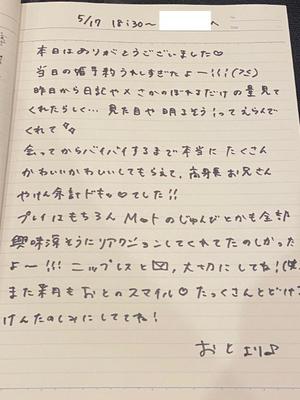 5/17 18:30〜 へ
本日はありがとうございました♡
当日の姫予約うれしすぎたよ〜!!!
昨日から日記やメさかのぼれるだけの量見て
くれたらしく… 見た目や明るそう!ってえらんで
くれて
会ってからバイバイするまで本当にたくさん
かわいいかわいいしてもらえて、高身長お兄さん
やけん余計ドキッ♡でした!!
プレイはもちろん Motのじゅんびとかも全部
興味深そうにリアクションしてくれてたのしかった
よ〜!!! ニップレスと✉、大切にしてね!
また来月もおとのスマイル♡たっくさんとどけ
けんたのしみにしててね!
おとより♪